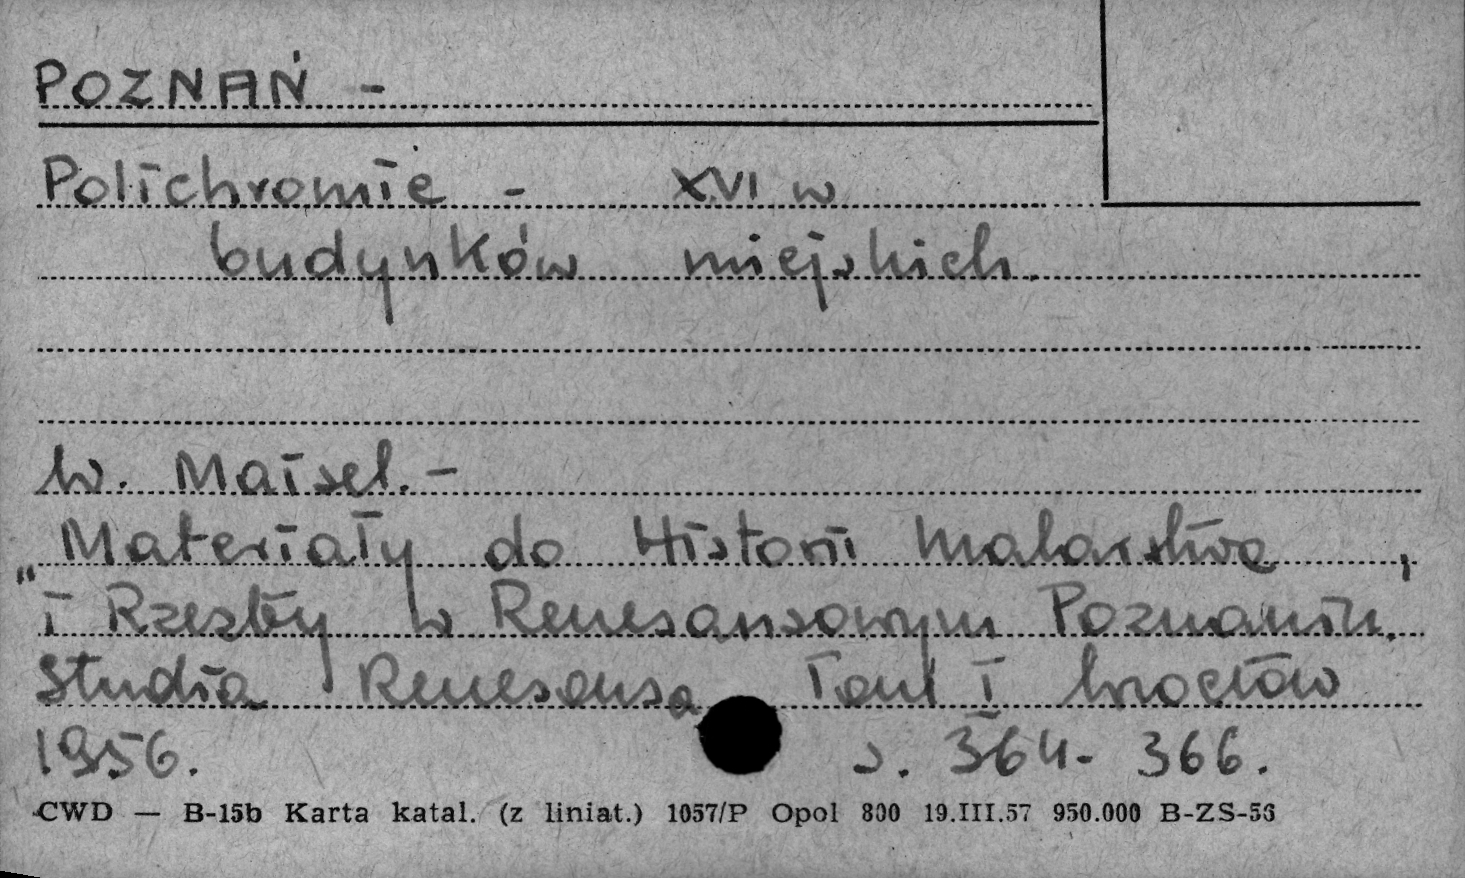 POZNAŃ -
Polichromie - XVI w
budynków miejskich.
W. Maisel. -
Materiały do Historii Malarstwa,
„i Rzezby w Renesansowym Poznaniu.
Studia Renesansa Tom I Wrocław
1956. s. 364-366.
CWD — B-15b Karta katal. (z liniat.) 1057/P Opol 800 19.III.57 950.000 B-ZS-56